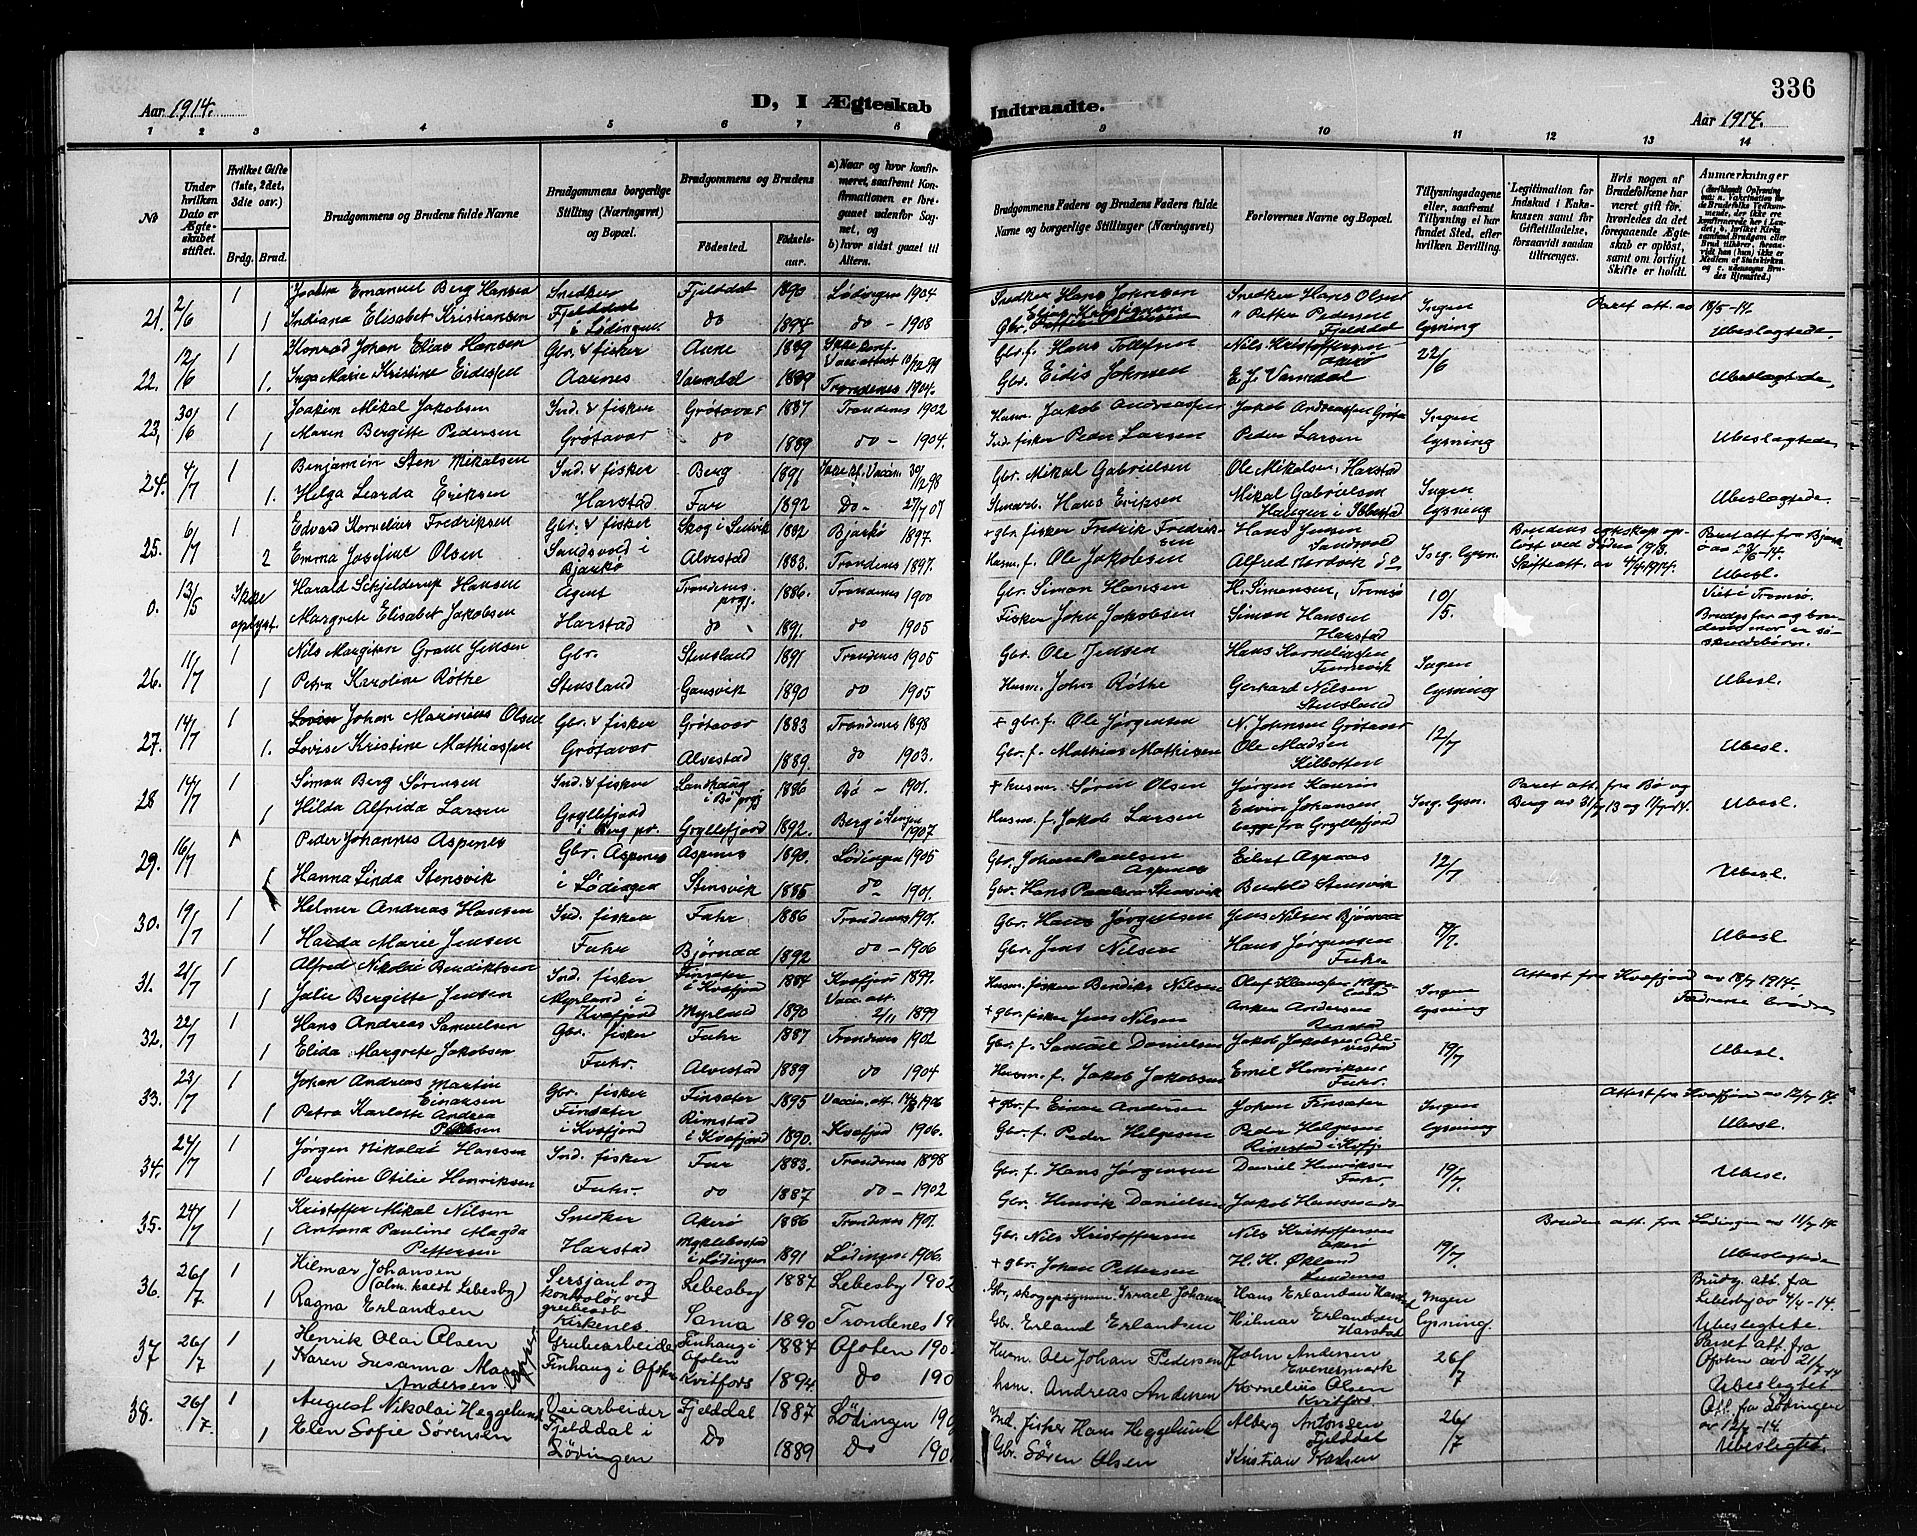 336
Aar 1914.
D, I Ægteskab
Indtraadte.
Aar 1914.
1 2 3 4 5 6 7 8 9 10 11 12 13 14
No
Under hvilken Dato er Ægteskabet stiftet.
Hvilket Gifte (1ste, 2det, 3die osv.)
Brdg. Brud.
Brudgommens og Brudens fulde Navne
Brudgommens borgerlige Stilling (Næringsvei) og Bopæl.
Brudgommens og Brudens
Fødested. Fødselsaar.
a) Naar og hvor konfirmeret, saafremt Konfirmationen er foregaaet udenfor Sognet, og
b) hvor sidst gaaet til Alters.
Brudgommens Faders og Brudens Faders fulde Navne og borgerlige Stillinger (Næringsvei)
Forlovernes Navne og Bopæl.
Tillysningsdagene eller, saafremt Tillysning ei har fundet Sted, efter hvilken Bevilling.
Legitimation for Indskud i Enkekassen samt for Giftetilladelse, forsaavidt saadan tiltrænges.
Hvis nogen af Brudefolkene har været gift før, hvorledes da det foregaaende Ægteskab er opløst, samt om lovligt Skifte er holdt.
Anmærkninger
21. 2/6 1 Joakim Emanuel Berg Hansen Snedker Fjelddal 1890 Lødingen 1904 Snedker Hans Johnsen Snedker Hans Olsen Ingen Paret att. av 18/5-14
1 Indiana Elisabet Kristiansen Fjelddal i Lødingen do 1894 do - 1908 Gbr. " Petter Pedersen Fjelddal lysning Ubeslægtede.
22. 12/6 1 Konrad Johan Elias Hansen Gbr. & fisker Aune 1889 Ikke konf. Vacc. attest 10/12 99 Gbr. f. Hans Tollefsen Nils Kristoffersen Akerø 22/6
1. Inga Marie Kristine Eidissen Aarnes Varmdal 1889 Trondenes 1904. Gbr. Eidis Johnsen E. J. Varmdal Ubeslægtede,
23, 30/6 1 Joakim Mikal Jakobsen Ind. & fisker Grøtavær 1887 Trondenes 1902 Husm. Jakob Andreassen Jakob Andreassen Grøtav. Ingen
1 Maren Bergitte Pedersen Grøtavær do 1889 do - 1904. Ind. fisker Peder Larsen Peder Larsen lysning Ubeslægtede
24. 4/7 1 Benjamin Sten Mikalsen Ind. & fisker Berg 1891 Ikke kf. Vaccin. 30/12 98 Gbr. Mikal Gabrielsen Ole Mikalsen, Harstad Ingen
1. Helga Learda Eriksen Harstad Fur 1892 Do - 27/7 07 Hans Eriksen Mikal Gabrielsen Hanger i Ibbestad lysning Ubeslægtede
25. 6/7 1 Edvard Kornelius Fredriksen Gbr. & fisker Skog i Sandvik 1882 Bjarkø 1897. + gbr. fisker Fredrik Fredriksen Hans Jensen Sandvold Brudens egteskap opløst ved døden 1913. Paret att. fra Bjarkø av 29/6-14.
2 Emma Josefine Olsen Sandsvold i Bjarkø Alvestad 1883. Trondenes 1897. Husm. f. Ole Jakobsen Alfred Nordvik do Ing. lysn. Skifteatt. av 7/4 1914. Ubesl.
0. 13/5 Ikke Harald Schjelderup Hansen Agent Trondenes prgj. 1886. Trondenes 1900 Gbr. Simon Hansen H. Simonsen, Tromsø 10/5. Viet i Tromsø.
oplyst. Margrete Elisabet Jakobsen Harstad do 1891. do 1905 Fisker John Jakobsen Simon Hansen Harstad Brudgs. far og brudens mor er søskendebørn.
26. 11/7 1 Nils Margiton Gram Jensen Gbr. Stensland 1891 Trondenes 1905 Gbr. Ole Jensen Hans Korneliussen Tennevik Ingen
1 Petra Karoline Røthe Stensland Gausvik 1890 do 1905 Husm. John Røthe Gerhard Nilsen Stensland lysning Ubesl.
27. 14/7 1 Johan Marinius Olsen Gbr. & fisker Grøtavær 1883 Trondenes 1898 + gbr. f. Ole Jørgensen N. Johnsen Grøtavær 12/7
1. Lovise Kristine Mathiassen Grøtavær Alvestad 1889. do 1903. Gbr. f. Mathias Mathisen Ole Madsen Kilbotten Ubesl.
28 14/7 1 Simon Berg Sørensen Ind. & fisker i Bø prgj. 1886 Bø - 1901. + husm. Søren Olsen Jørgen Kaurin Paret att. fra Bø og
1 Hilda Alfrida Larsen Gryllefjord i Berg pr. Gryllefjord 1892. Berg i Senjen 1907. Husm. f. Jakob Larsen Edvin Johansen begge fra Gryllefjord Ing. lysn. Berg av 31/7 13 og 11/7 14. Ubesl.
29. 16/7 1 Peder Johannes Aspenes Gbr. Aspenes Aspenes 1890. Lødingen 1905 Gbr. Johan Paulsen Aspenes Eilert Aspaas 12/7
1 Hanna Linda Stensvik i Lødingen Stensvik 1885 do - 1901. Gbr. Hans Stensvik Bertold Stensvik Ubesl.
30. 19/7 1 Helmer Andreas Hansen Ind. fisker Fuhr 1886 Trondenes 1901. Gbr. Hans Jørgensen Jens Nilsen Bjørnaa 19/7.
1 Harda Marie Jensen Fuhr Bjørnaa 1892 do - 1906 Gbr. Jens Nilsen Hans Jørgensen Fuhr Ubesl.
31. 21/7 1 Alfred Nikolai Bendiktsen Ind. fisker Finsæter i Kvæfjord 1884 Kvæfjord 1899. Husm. fisker Bendikt Nilsen Olaf Klaussen Ingen Attest fra Kvæfjord av 18/7 1914.
1 Julie Bergitte Jensen Myrland i Kvæfjord Myrland 1890 Vacc. att. 2/11 1899 + gbr. fisker Jens Nilsen Anker Andersen lysning
32. 22/7 1 Hans Andreas Samuelsen Gbr. fisker Fuhr 1887 Trondenes 1902 Gbr. f. Samuel Danielsen Jakob Jakobsen Alvestad 19/7
1 Elida Margrete Jakobsen Fuhr. Alvestad 1889 do 1904 Husm. f. Jakob Jakobsen Emil Henriksen Fuhr. Ubesl.
33. 23/7 1 Johan Andreas Martin Einarsen Gbr. fisker Finsæter 1895 Vaccin. att. 1906 + gbr. f. Einar Andersen Johan Finsæter Ingen Attest fra Kvæfjord av 12/7 14.
1 Petra Karlotte Andrea Finsæter i Kvæfjord Rimstad i Kvæfjord 1890. Kvæfjord 1906. Gbr. f. Peder Helgesen Peder Helgesen Rimstad i Kvfj. lysning Ubesl.
34. 24/7 1 Jørgen Nikolai Hansen Ind. fisker Fur 1883. Trondenes 1898 Gbr. f. Hans Jørgensen Daniel Henriksen Fuhr 19/7.
1 Peroline Otilie Henriksen Fuhr. do 1887 do - 1902 Gbr. Henrik Danielsen Jakob Hansen do Ubesl.
35. 24/7 1 Kristoffer Mikal Nilsen Snedker Akerø 1886 Trondenes 1901. Gbr. Nils Kristoffersen Nils Kristoffersen Akerø 19/7 Bruden att. fra Lødingen av 11/7 14.
1 Antona Pauline Magda Pettersen Harstad Myklebostad i Lødingen 1891 Lødingen 1906. + gbr. Johan Pettersen H. K. Økland Ubeslægtede
36. 26/7 1 Hilmar Johansen (alm. kaldt Lebesby) Sersjant og kontrolør ved Lebesby 1887 Lebesby 1902 Gbr, skogopsynsm. Israel Johansen Hans Erlandsen Harstad Ingen Brudg. att. fra Lebesby av 4/4-14.
1 Ragna Erlandsen grubearb. Kirkenes Sama 1890 Trondenes 19 Gbr. Erland Erlandsen Hilmar Erlandsen Harstad lysning. Ubeslegtete
37 26/7 1 Henrik Olai Olsen Grubearbeider Finhaug i Ofoten 1887 Ofoten 190 Husm. Ole Johan Pedersen John Andersen Evenesmark 26/7 Paret att. fra Ofoten av 21/7 14
1 Karen Susanna Andersen Finhaug i Ofoten Kvitfors 1894. Do 190 hsm. Andreas Andersen Kornelius Olsen Kvitfors. Ubeslegtet
38. 26/7. 1 August Nikolai Heggelund Veiarbeider Fjelddal 1887 Lødingen 190 Ind. fisker Hans Heggelund Alberg Antonsen Fjelddal 26/7 Att. fra Lødingen av 12/7-14.
1 Elen Sofie Sørensen Fjelddal i Lødingen Do 1889 Do 190 Gbr. Søren Olsen Kristian Karlsen Ubeslegtet.